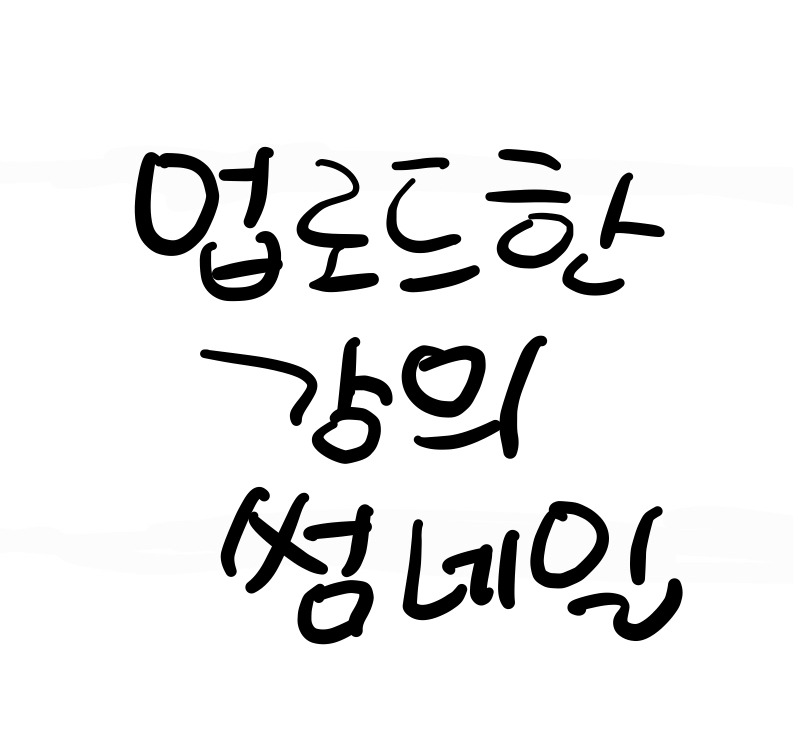 업로드한
강의
썸네일